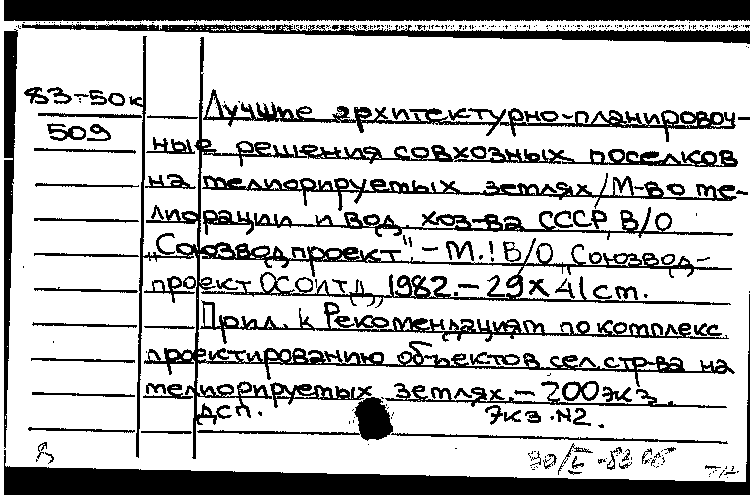 83-50к
509
Лучшие архитектурно-планировоч-
ные решения совхозных поселков
на мелиорируемых землях/М-во ме-
лиорации и вод. хоз-ва СССР, В/О
„Союзводпроект". - М.: В/О „Союзвод-
проект, ОСОИТД, 1982. - 29х41см.
Прил. к Рекомендациям по комплекс.
проектированию объектов сел. стр-ва на
мелиорируемых землях. - 200 экз.
ДСП. Экз. N2.